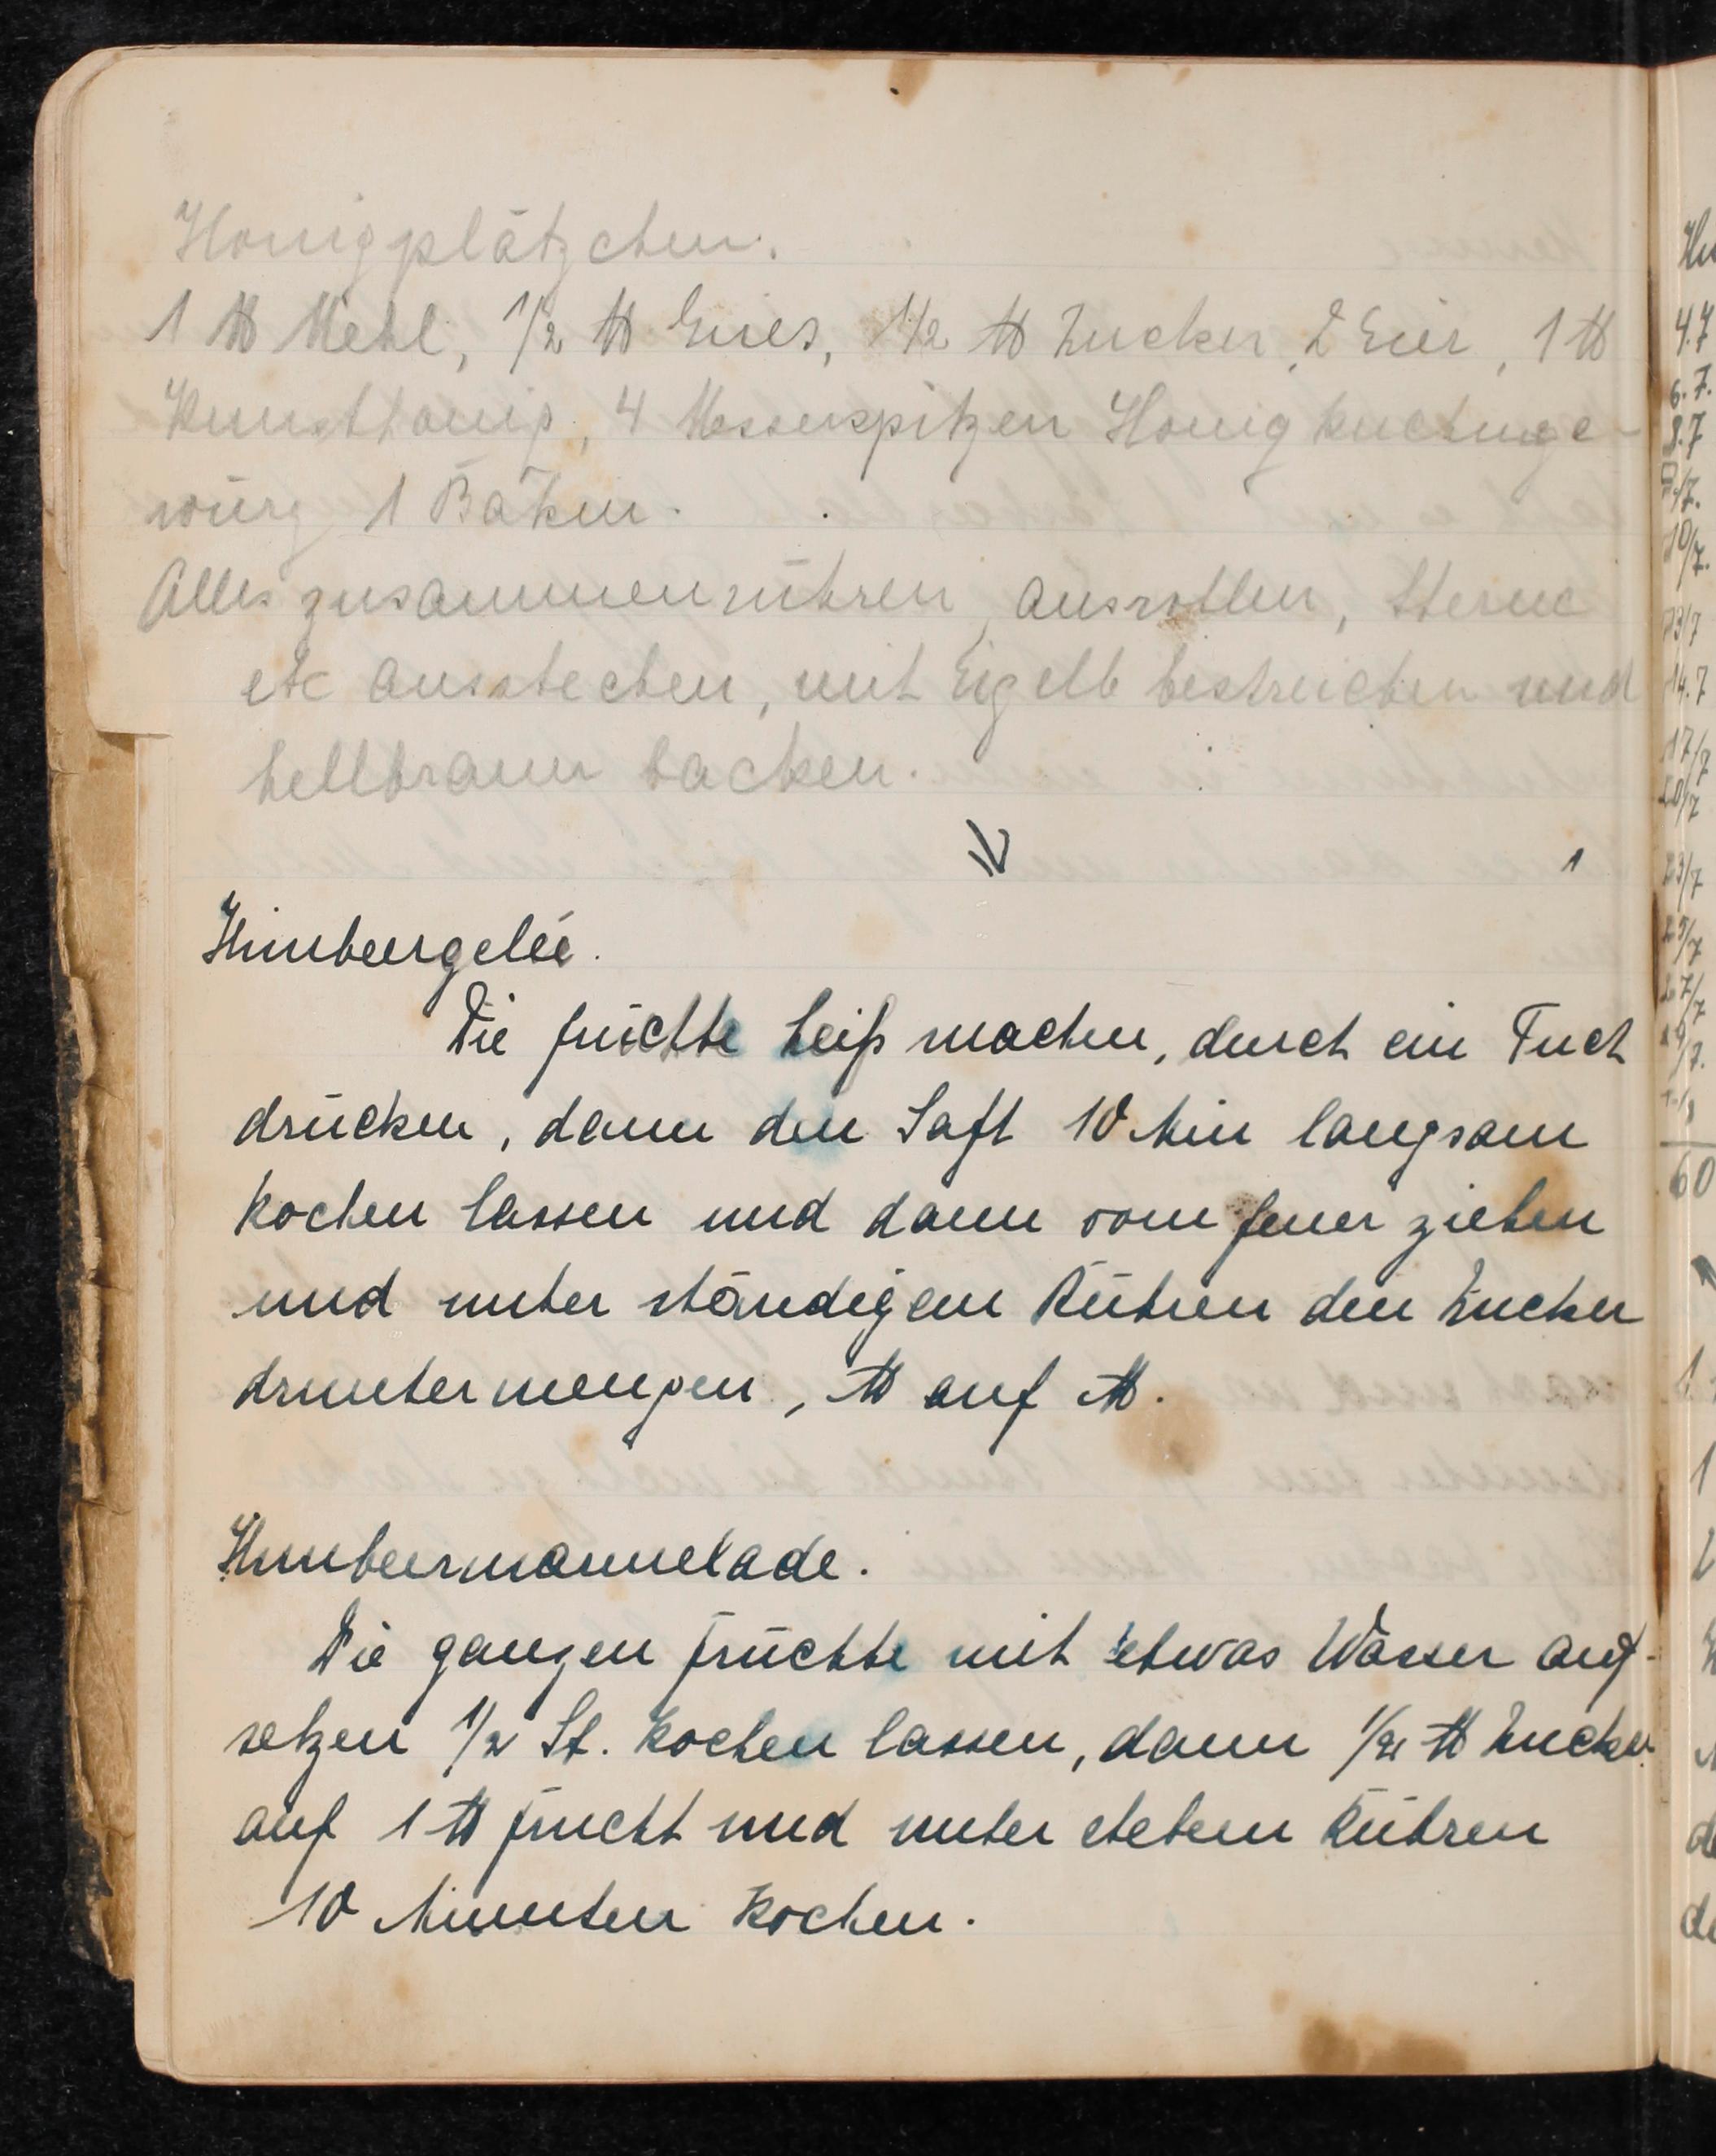 Honigplätzchen.
1 ℔ Mehl, 1/2 ℔ Gries, 1/2 ℔ Zucker, 2 Eier, 1 ℔
Kunsthonig, 4 Messerspitzen Honigkuchenge-
würz 1 Backin.
Alles zusammenrühren, ausrollen, Sterne
etc ausstechen, mit Eigelb bestreichen und
hellbraun backen.
Himbeergelée.
Die Früchte heiß machen, durch ein Tuch
drücken, dann den Saft 10 Min langsam
kochen lassen und dann vom Feuer ziehen
und unter ständigem Rühren den Zucker
druntermengen, ℔ auf ℔.
Himbeermarmelade.
Die ganzen Früchte mit etwas Wasser auf-
setzen 1/2 St. kochen lassen, dann 1/2 ℔ Zucker
auf 1 ℔ Frucht und unter stetem Rühren
10 Minuten kochen.
4.7
6.7.
8.7
10/7.
13/7
14.7
17/7
20/7
23/7
25/7
27/7
60